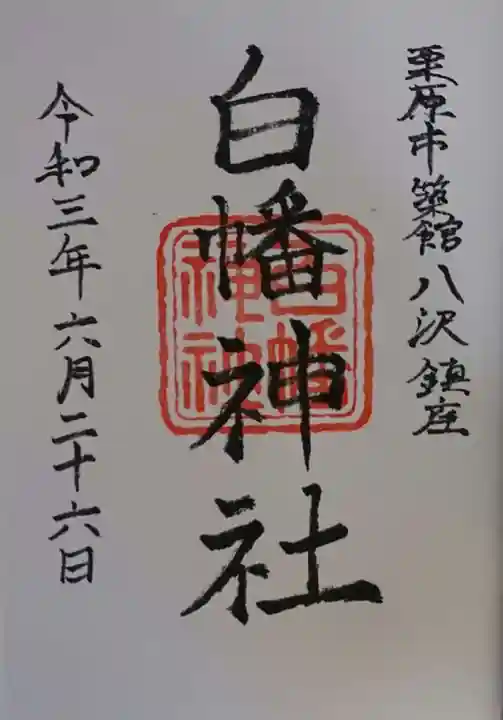 栗原市築館八沢鎮座
白幡神社
白幡神社
今和三年六月二十六日